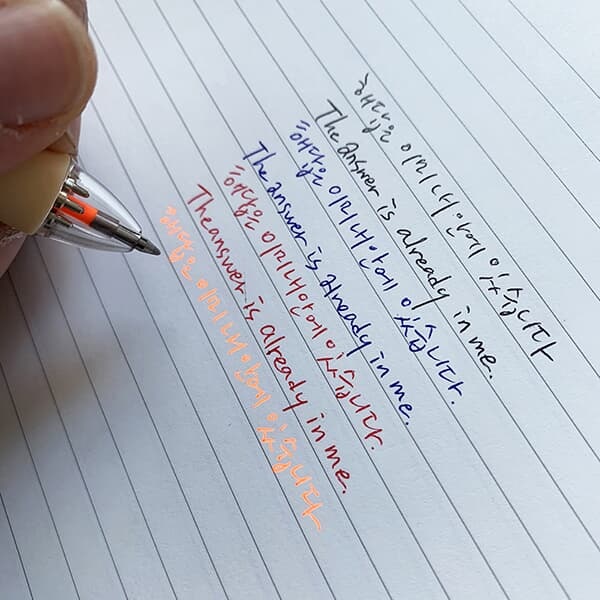 해답은 이미 내 안에 있습니다
The answer is already in me.
해답은 이미 내 안에 있습니다.
The answer is already in me.
해답은 이미 내 안에 있습니다.
The answer is already in me.
해답은 이미 내 안에 있습니다